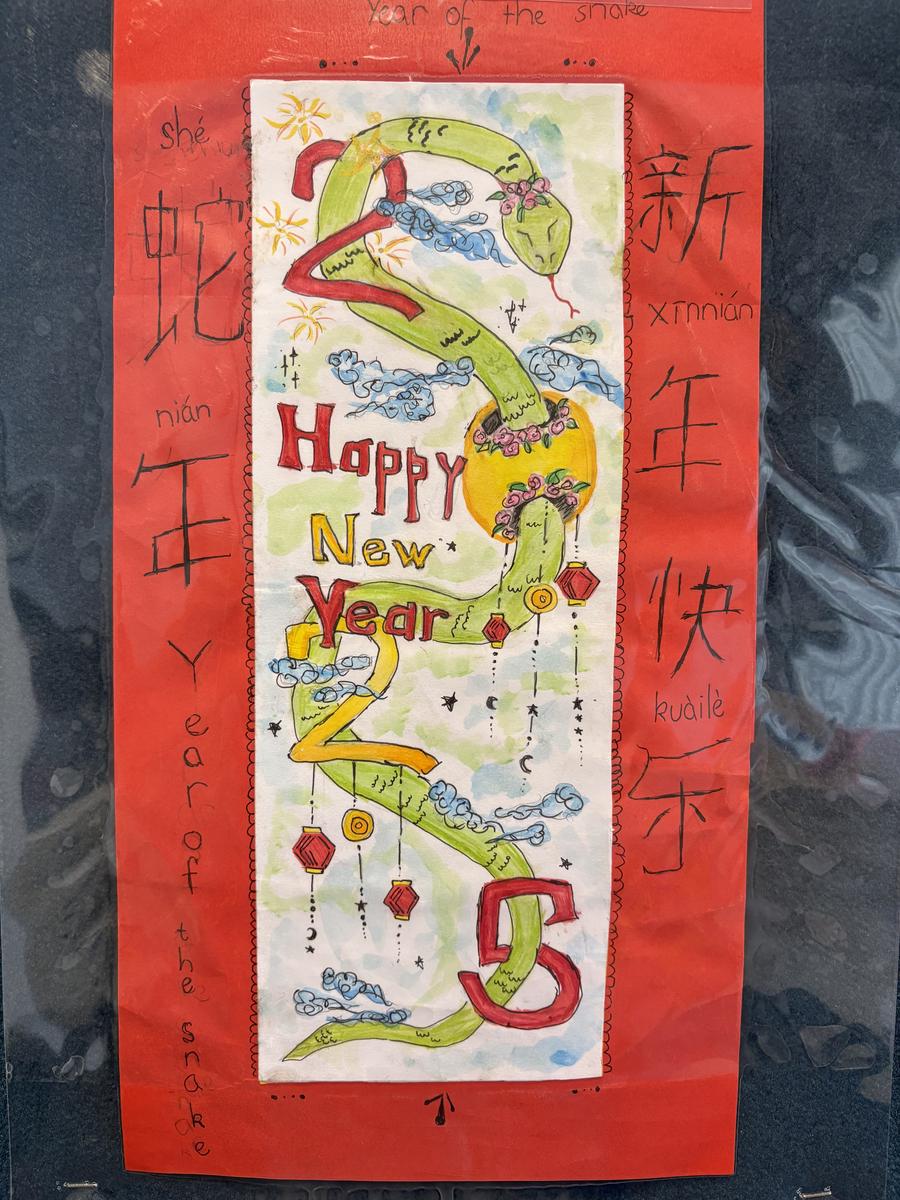 Year of the snake
shé
蛇
nián
年
Year of the snake
2
Happy
New
Year
2
5
新
xīnnián
年
快
kuàilè
乐